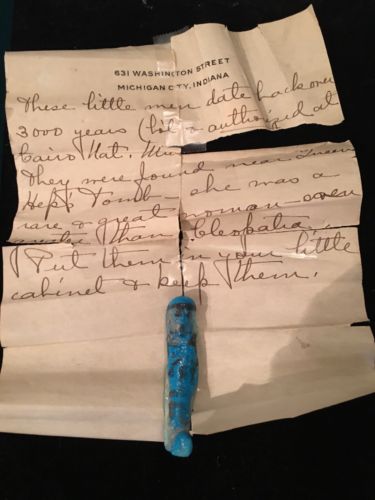 631 WASHINGTON STREET
MICHIGAN CITY, INDIANA
These little men date back over
3000 years ( authorized at
Cairo Nat. Mus
They were found near Queen
Hep's Tomb — she was a
rare & great woman — even
greater than Cleopatra,
Put them in your little
cabinet & keep them.